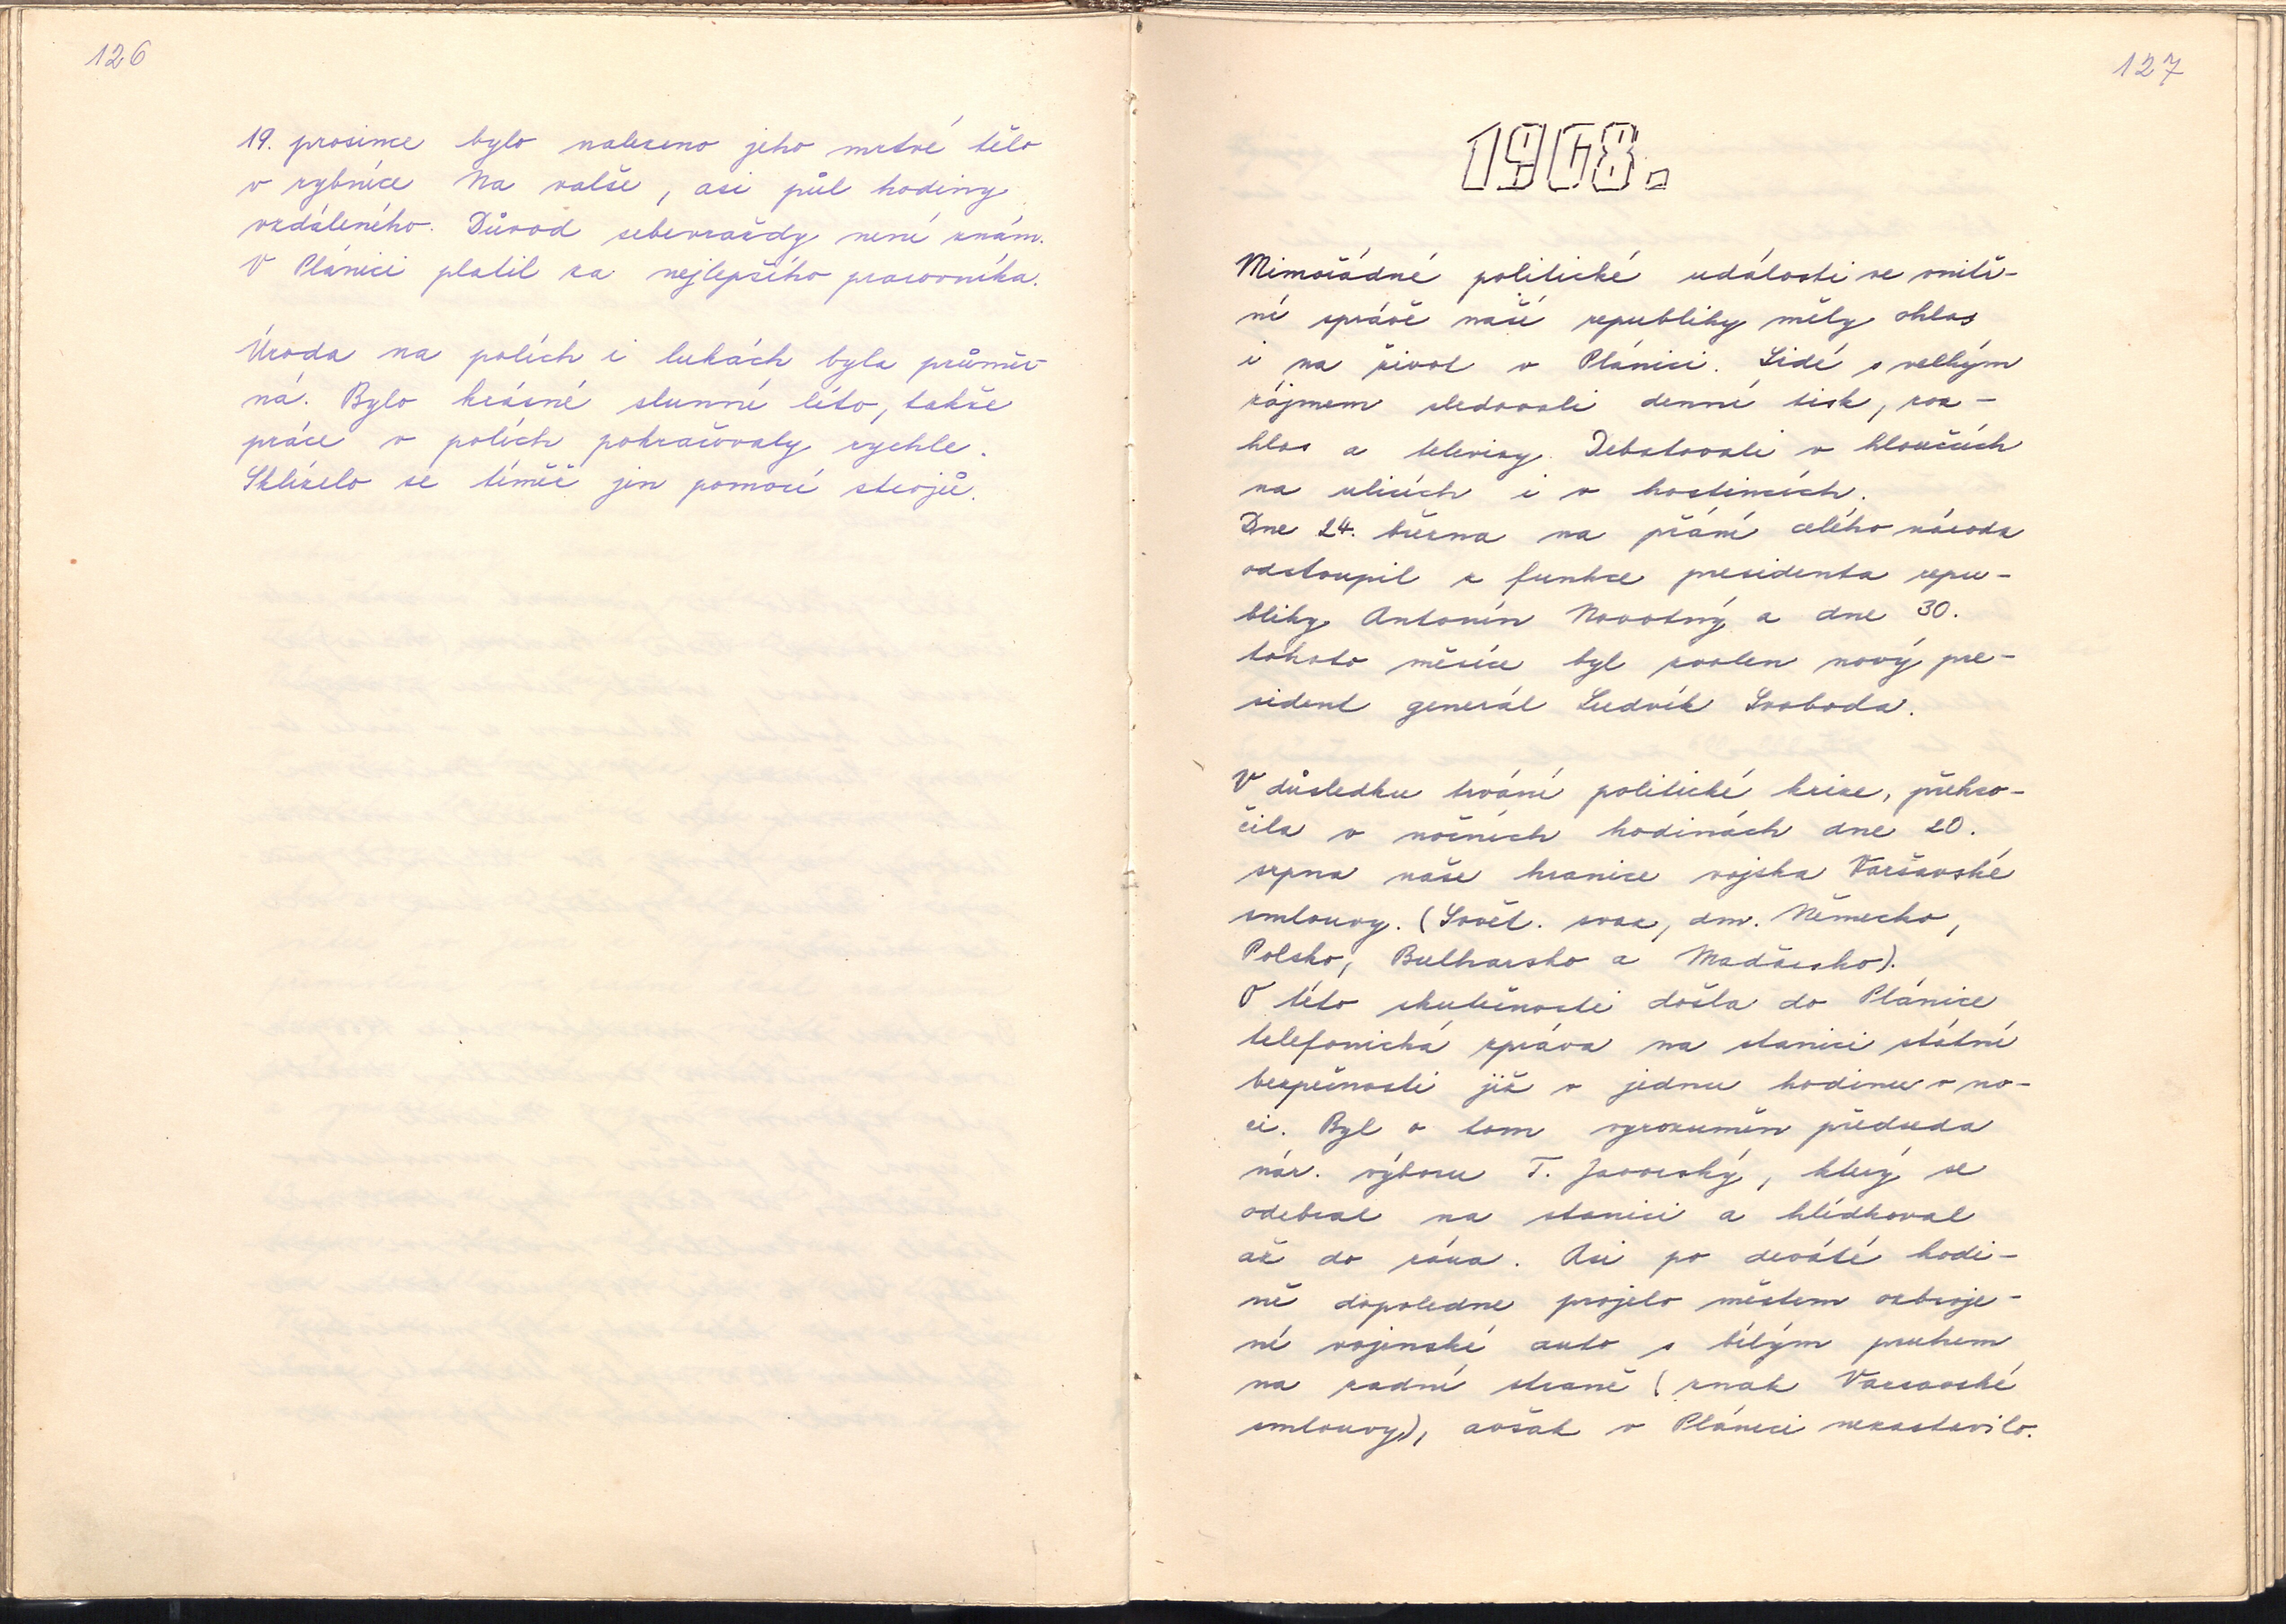 126
19. prosince bylo nalezeno jeho mrtvé tělo
v rybníce Na valše, asi půl hodiny
vzdáleného. Důvod sebevraždy není znám.
V Plánici platil za nejlepšího pracovníka.
Úroda na polích i lukách byla průměr-
ná. Bylo krásné slunné léto, takže
práce v polích pokračovaly rychle.
Sklízelo se téměř jen pomocí strojů.
127
1968.
Mimořádné politické události ve vnitř-
ní správě naší republiky měly ohlas
i na život v Plánici. Lidé s velkým
zájmem sledovali denní tisk, roz-
hlas a televizy. Debatovali v hloučcích
na ulicích i v hostincích.
Dne 24. března na přání celého národa
odstoupil z funkce presidenta repu-
bliky Antonín Novotný a dne 30.
tohoto měsíce byl zvolen nový pre-
sident generál Ludvík Svoboda.
V důsledku trvání politické krize, překro-
čila v nočních hodinách dne 20.
srpna naše hranice vojska Varšavské
smlouvy. (Sovět. svaz, dm. Německo,
Polsko, Bulharsko a Maďarsko).
O této skutečnosti došla do Plánice
telefonická zpráva na stanici státní
bezpečnosti již v jednu hodinu v no-
ci. Byl o tom vyrozuměn předseda
nár. výboru T. Javorský, který se
odebral na stanici a hlídkoval
až do rána. Asi po deváté hodi-
ně dopoledne projelo městem ozbroje-
né vojenské auto s bílým pruhem
na zadní straně (znak Varsavské
smlouvy), avšak v Plánici nezastavilo.